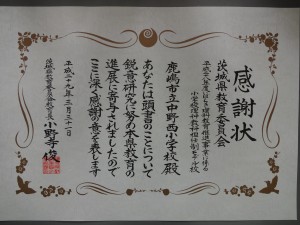 感謝状
茨城県教育委員会
鹿嶋市立中野西小学校殿
あなたは頭書のことについて
鋭意研究に努め本県教育の
進展に寄与されましたので
ここに深く感謝の意を表します
平成十九年三月三十一日
茨城県教育委員会教育長 小野寺 俊